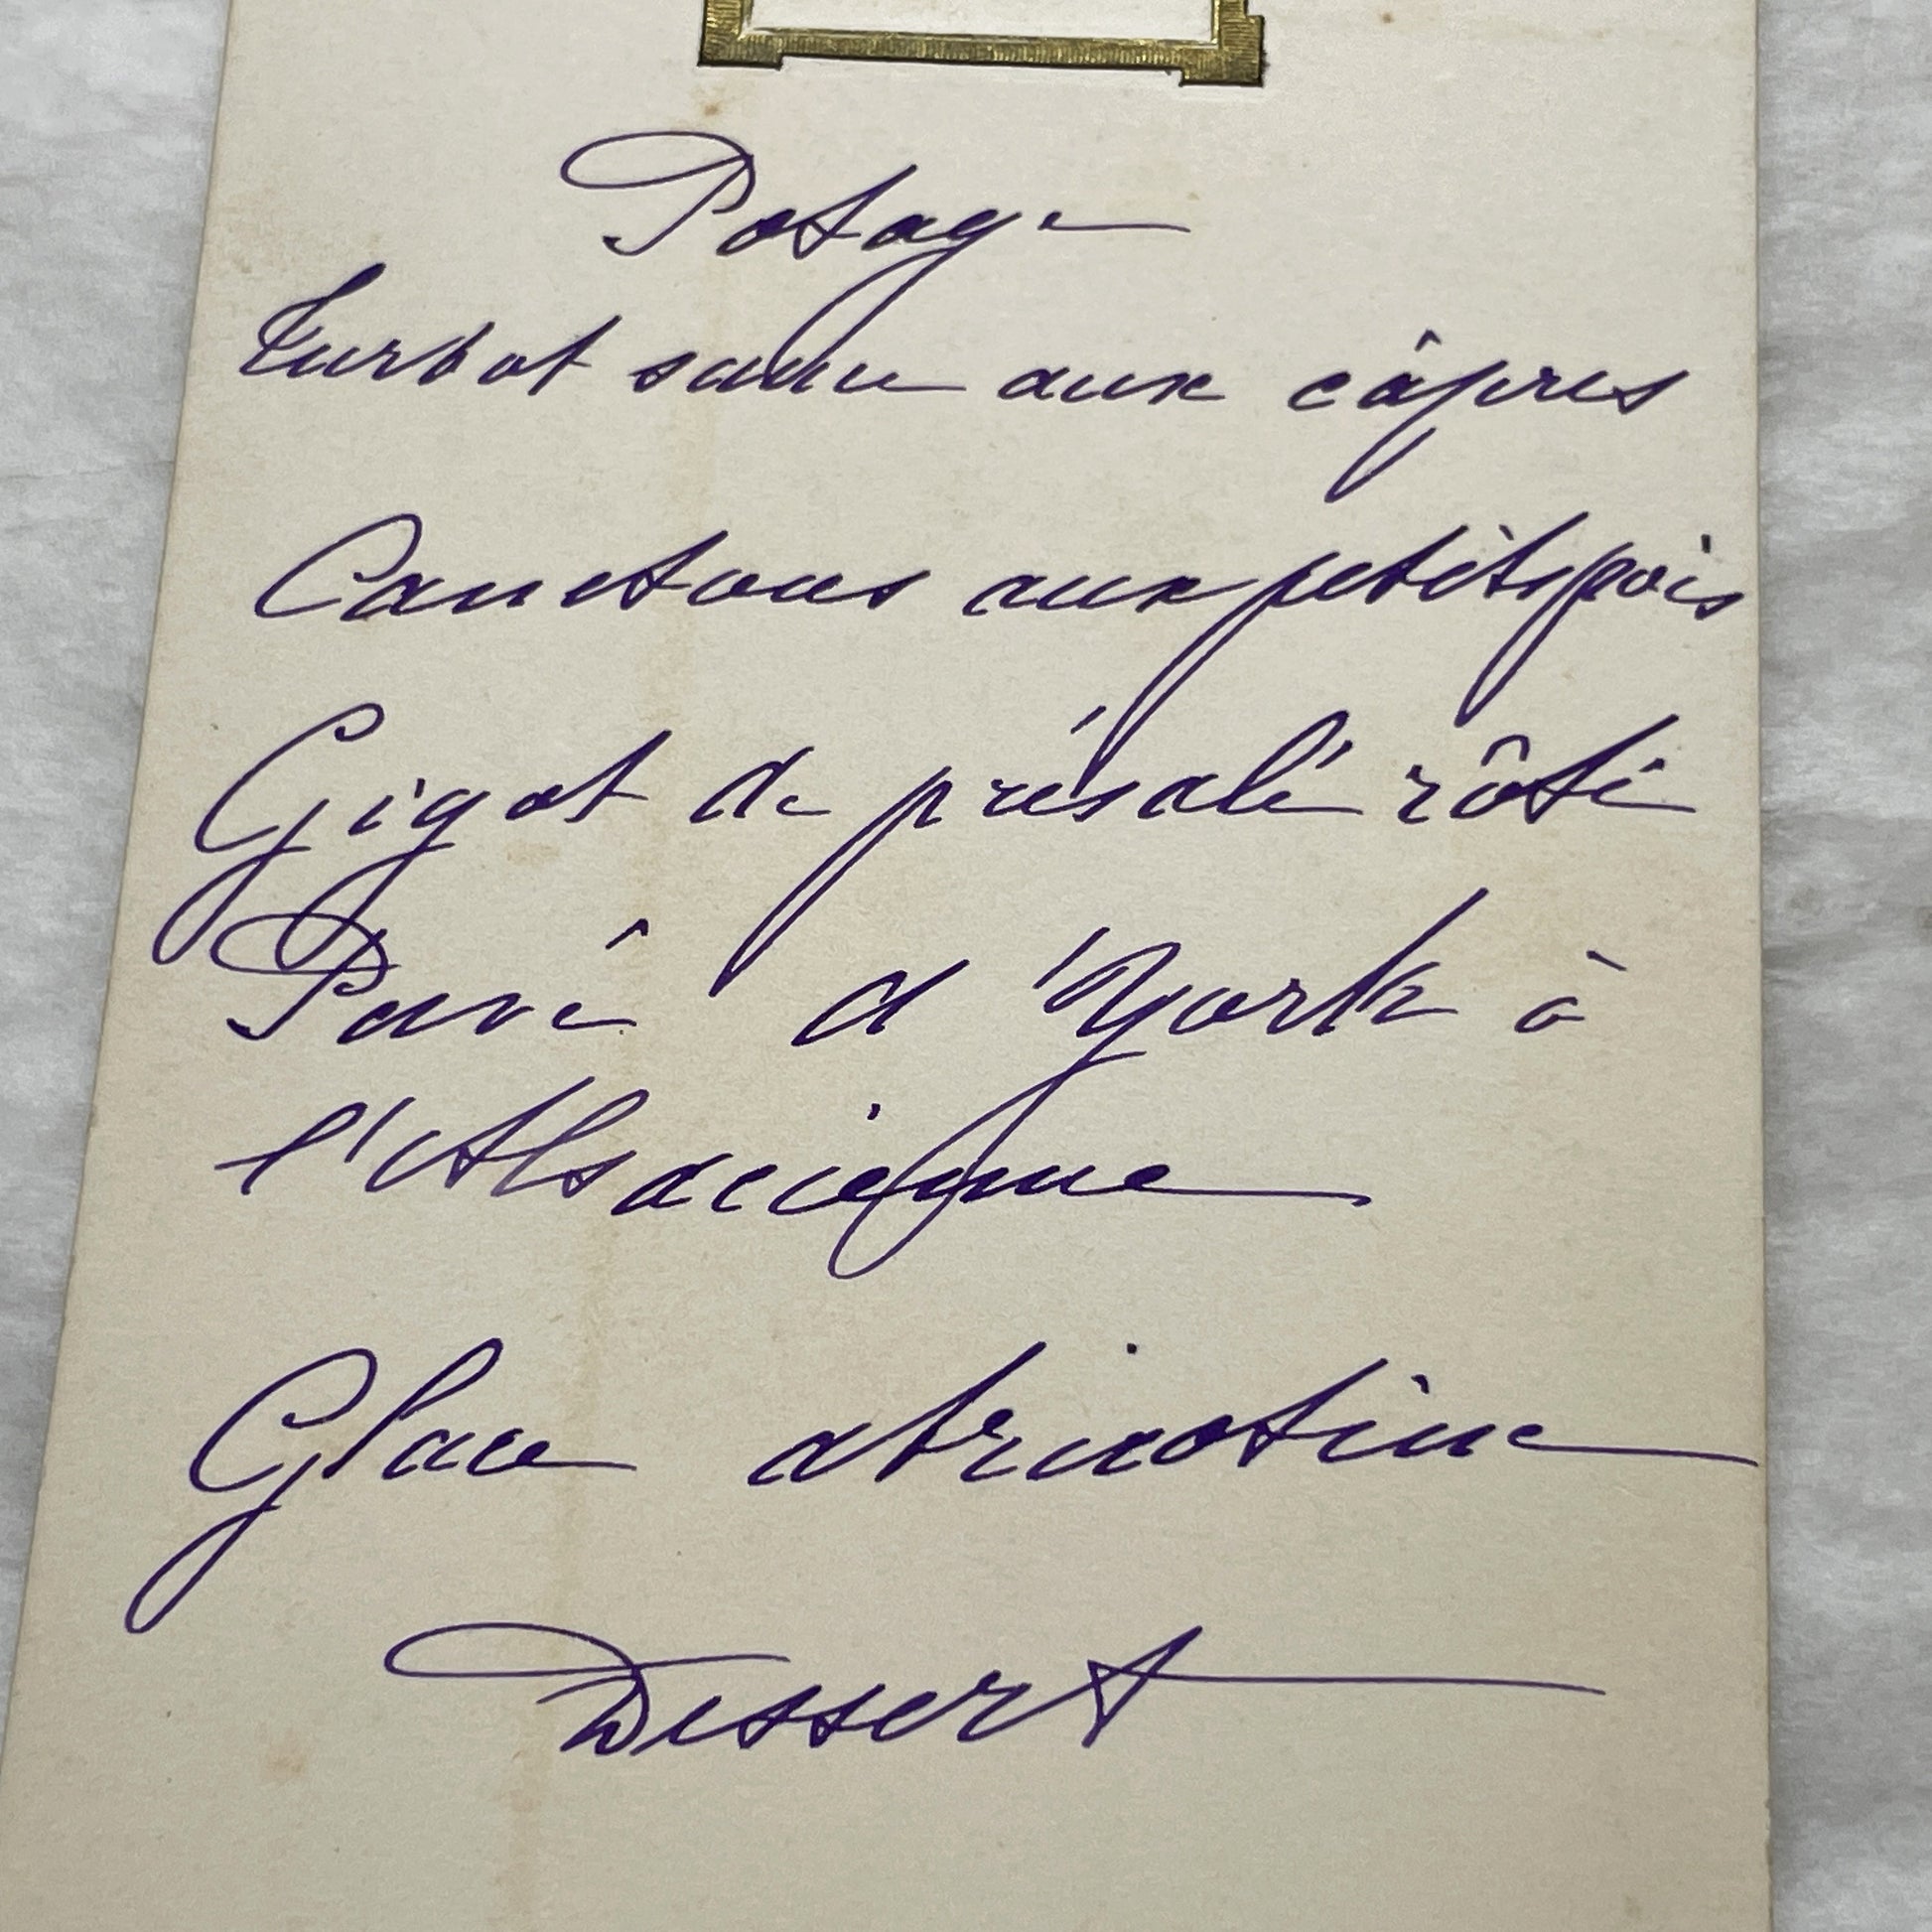 Potage
Turbot sauce aux câpres
Canetons aux petits pois
Gigot de présalé rôti
Pavé d'York à
l'Alsacienne
Glace abricotine
Dessert